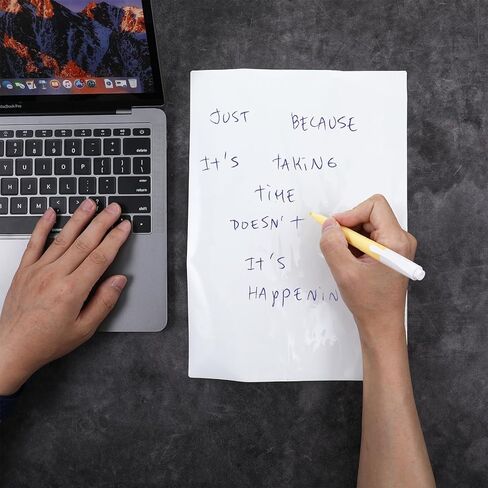 MacBook Pro
delete
return
shift
JUST BECAUSE
IT'S TAKING
TIME
DOESN'T
IT'S
HAppENIN